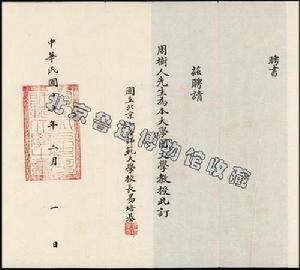 聘書
茲聘請
周樹人先生為本大學國文學教授此訂
國立北京 師範大學校長易培基
中華民國 年 二月 一 日
北京鲁迅博物馆收藏